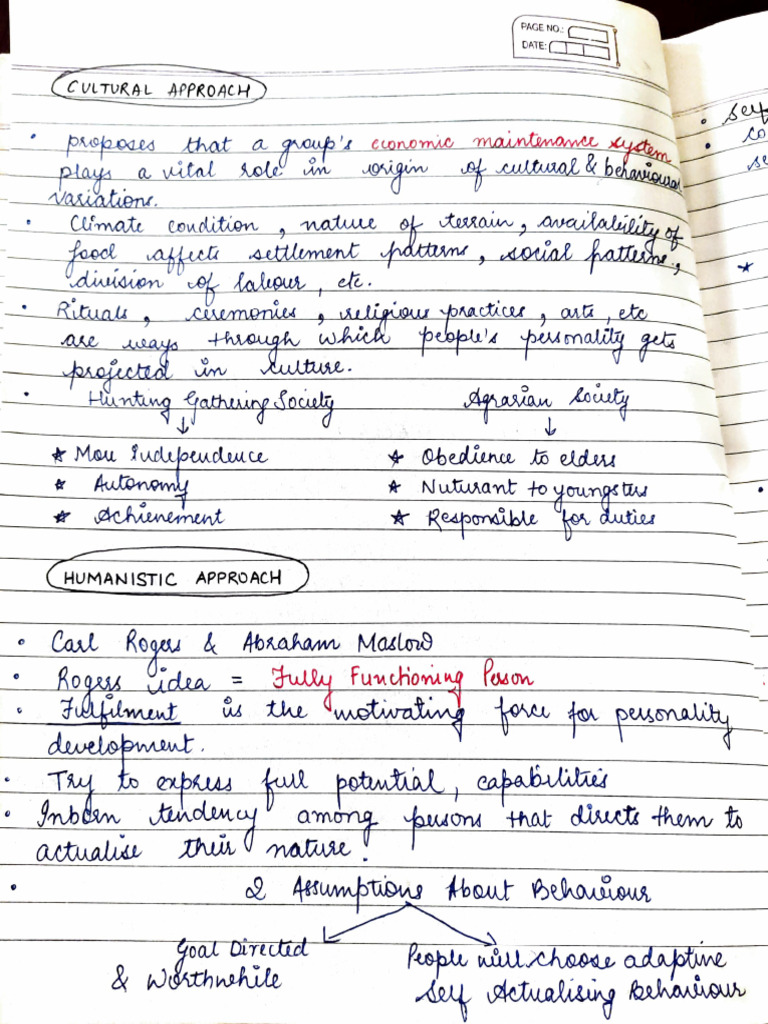 PAGE NO.:
DATE:
CULTURAL APPROACH
• proposes that a group's economic maintenance system
plays a vital role in origin of cultural & behavioural
variations.
• Climate condition, nature of terrain, availability of
food affects settlement patterns, social patterns,
division of labour, etc.
• Rituals, ceremonies, religious practices, arts, etc
are ways through which people's personality gets
projected in culture.
• Hunting Gathering Society Agrarian Society
↓ ↓
★ More Independence ★ Obedience to elders
★ Autonomy ★ Nuturant to youngsters
★ Achievement ★ Responsible for duties
HUMANISTIC APPROACH
• Carl Rogers & Abraham Maslow
• Rogers idea = Fully Functioning Person
• Fulfilment is the motivating force for personality
development.
• Try to express full potential, capabilities
• Inborn tendency among persons that directs them to
actualise their nature.
• 2 Assumptions About Behaviour
Goal Directed People will choose adaptive
& Worthwhile Self Actualising Behaviour
• self
• co
se
★